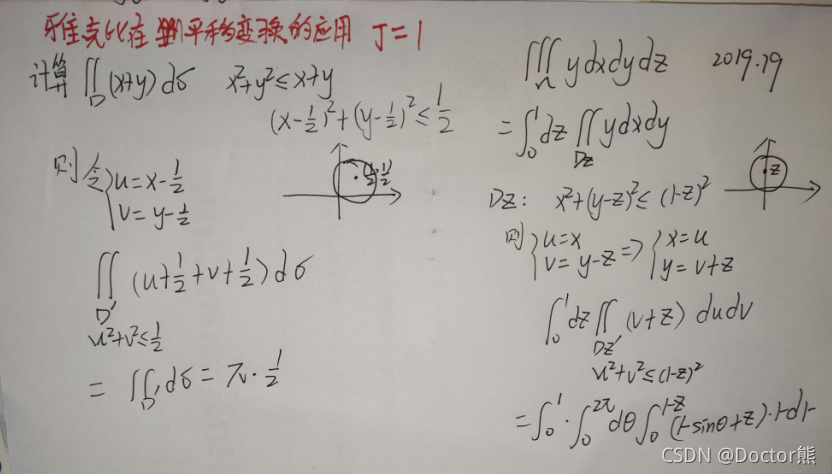 雅克比在平移变换的应用 J=1
计算 ∬_D (x+y)dσ x²+y²≤x+y
(x-1/2)²+(y-1/2)²≤1/2
则令 { u=x-1/2
v=y-1/2
(1/2,1/2)
∬_D' (u+1/2+v+1/2)dσ
u²+v²≤1/2
=∬_D' dσ=π·1/2
∭_Ω ydxdydz 2019.19
=∫₀¹dz∬_Dz ydxdy
z
Dz: x²+(y-z)²≤(1-z)²
则 { u=x v=y-z ⇒ { x=u y=v+z
∫₀¹dz∬_Dz' (v+z) dudv
u²+v²≤(1-z)²
=∫₀¹·∫₀^2π dθ∫₀^1-z (rsinθ+z)·rdr
CSDN @Doctor熊